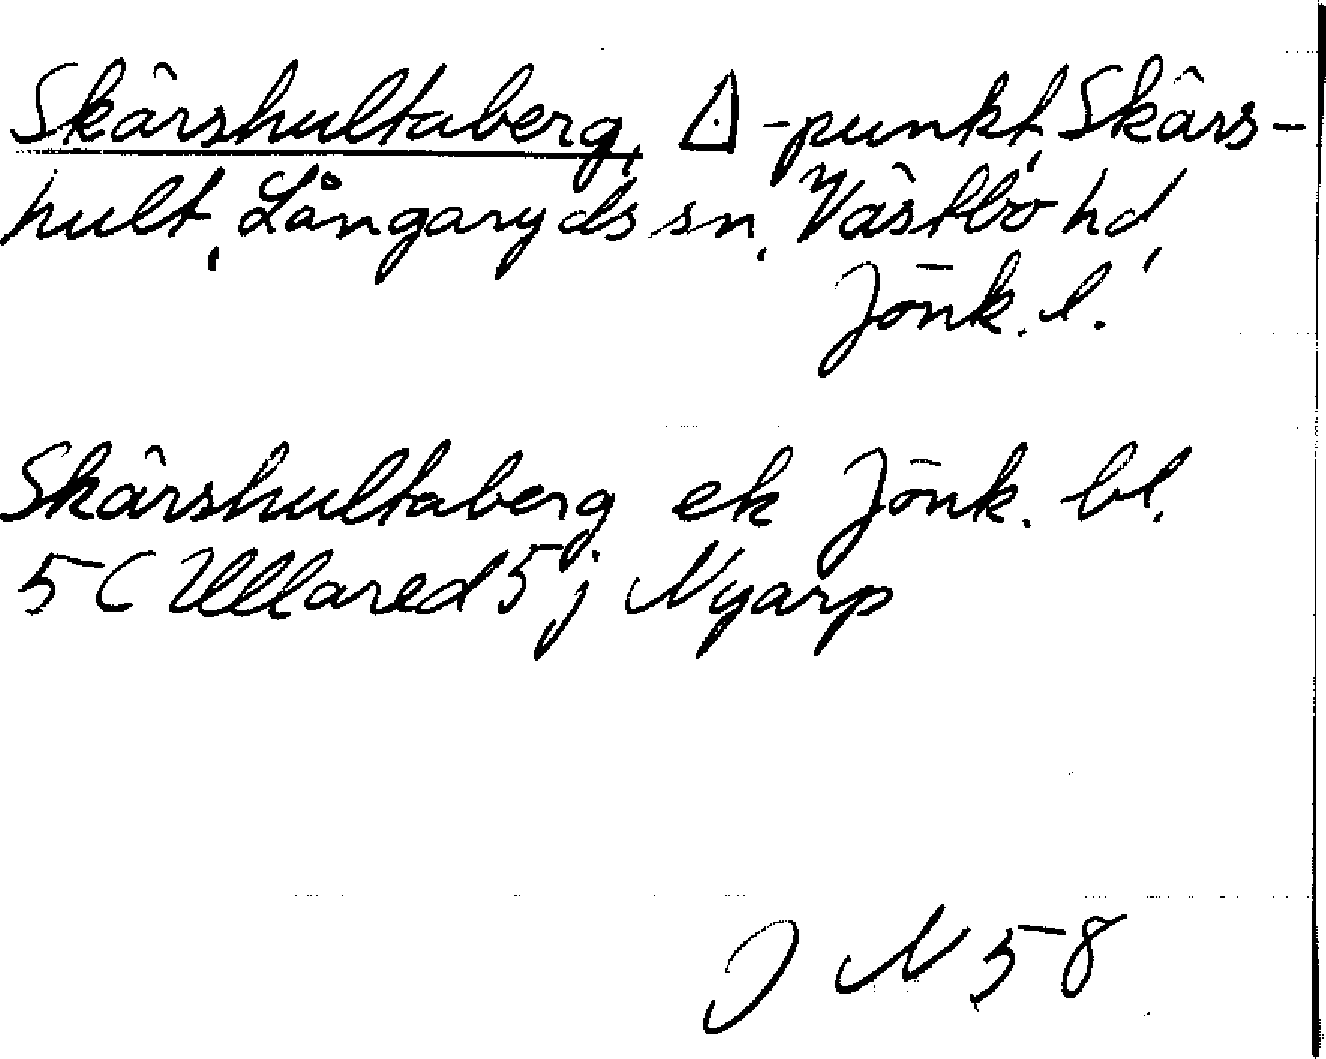 Skärshultaberg, △-punkt, Skärs-
hult, Långaryds sn, Västbo hd,
Jönk. l.
Skärshultaberg ek Jönk. bl.
5C Ullared 5j Nyarp
J N 58